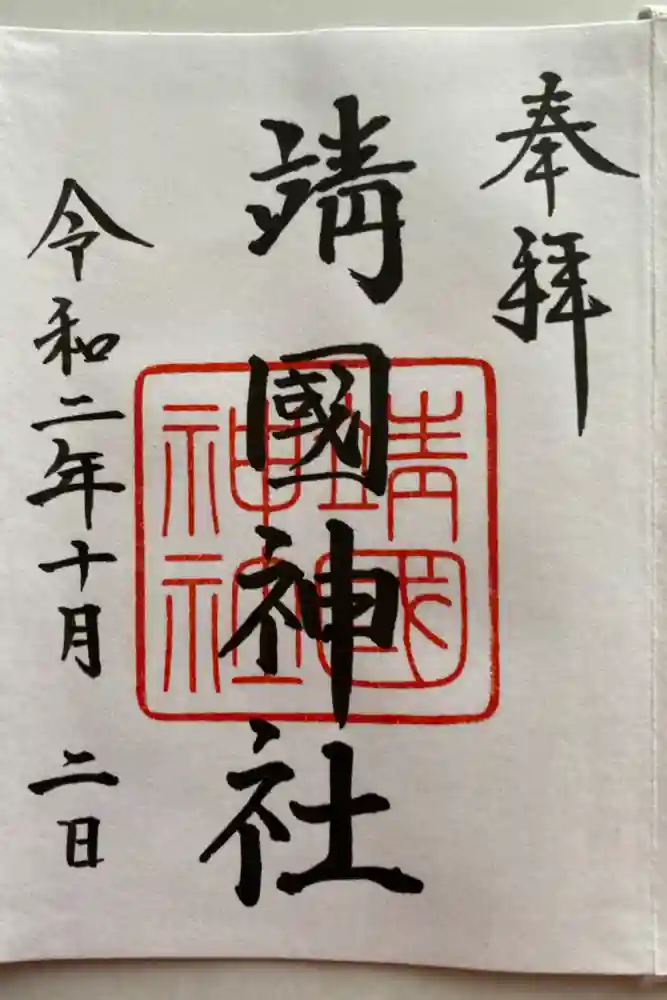 奉拝
靖國神社
靖国神社
令和二年十月二日